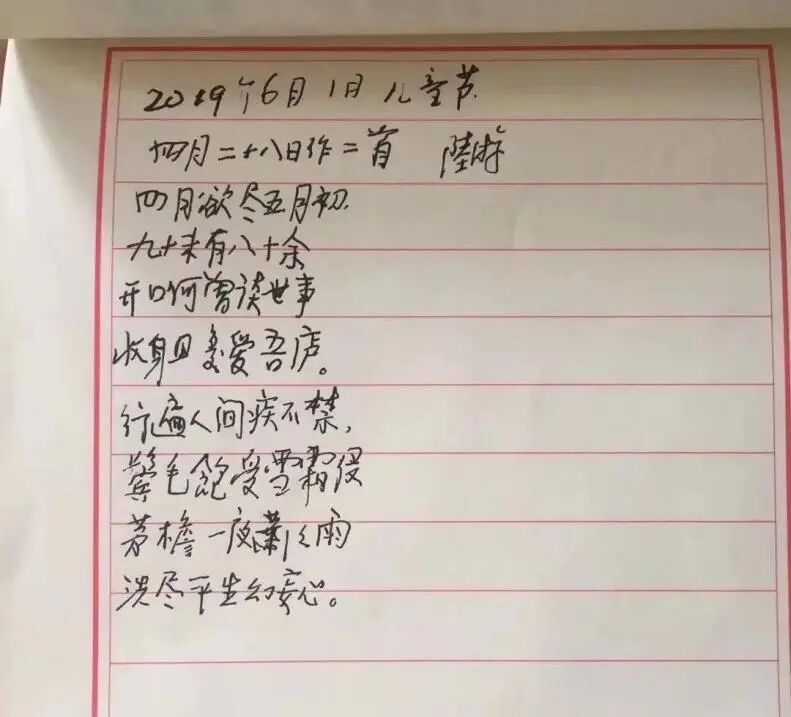 2019年6月1日儿童节.
四月二十八日作二首 陸游
四月欲尽五月初.
九十未有八十余
开口何曾谈世事
收身且爱吾庐。
行遍人间疾不禁,
鬓毛饱受雪霜侵
茅檐一夜萧々雨
洗尽平生幻妄心。